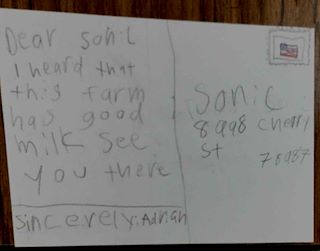 Dear sonic
I heard that
this farm
has good
milk see
you there
sincerely: Adrian
Sonic
8998 cherry
st 78987